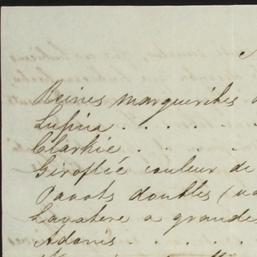 Reines marguerites
Lupins . . . .
Clarkie . . .
Giroflée couleur de
Pavots doubles
Lavatère a grande
Adonis . . . .